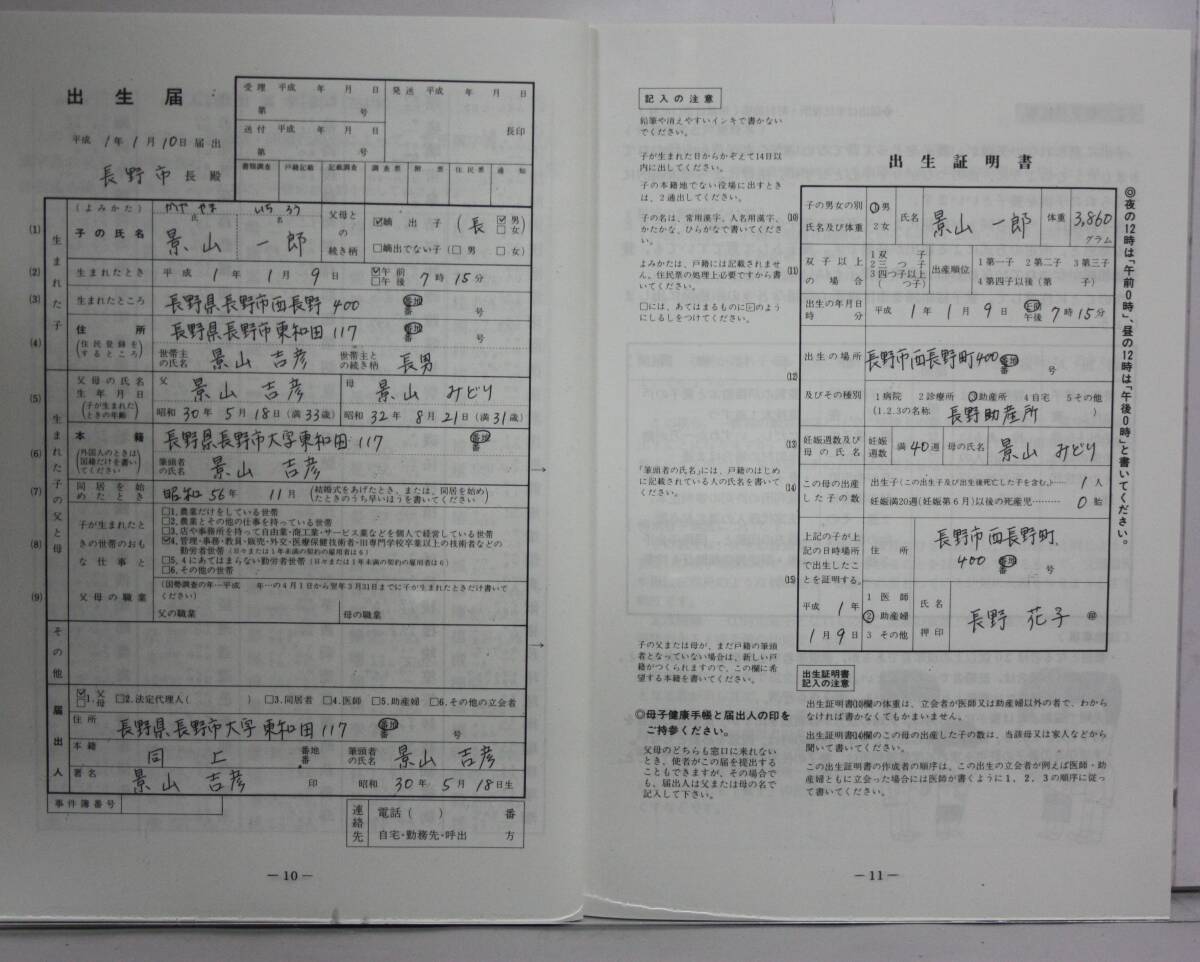 出生届
平成 1年 1月 10日届出
長野市 長 殿
受理 平成 年 月 日
第 号
発送 平成 年 月 日
送付 平成 年 月 日
第 号
長印
書類調査 戸籍記載 記載調査 調査票 附票 住民票 通知
生まれた子
(1)
(よみかた) かげ やま いち ろう
子の氏名
氏 名
景山 一郎
父母との続き柄
☑嫡出子 (長 ☑男 □女)
□嫡出でない子 (□男 □女)
(2) 生まれたとき 平成 1年 1月 9日 ☑午前 □午後 7時 15分
(3) 生まれたところ 長野県長野市西長野 400 番地 番 号
(4) 住所 長野県長野市東和田 117 番地 番 号
(住民登録をするところ)
世帯主の氏名 景山 吉彦 世帯主との続き柄 長男
生まれた子の父と母
(5) 父母の氏名 生年月日 (子が生まれたときの年齢)
父 景山 吉彦 母 景山 みどり
昭和 30年 5月 18日(満 33歳) 昭和 32年 8月 21日(満 31歳)
(6) 本籍 長野県長野市大字東和田 117 番地 番
(外国人のときは国籍だけを書いてください)
筆頭者の氏名 景山 吉彦
(7) 同居を始めたとき 昭和 56年 11月 (結婚式をあげたとき、または、同居を始めたときのうち早いほうを書いてください)
(8) 子が生まれたときの世帯のおもな仕事と
□1.農業だけをしている世帯
□2.農業とその他の仕事を持っている世帯
□3.店や事務所を持って自由業・商工業・サービス業などを個人で経営している世帯
☑4.管理・事務・教員・販売・外交・医療保健技術者・旧専門学校卒業以上の技術者などの勤労者世帯(日々または1年未満の契約の雇用者は6)
□5.4にあてはまらない勤労者世帯(日々または1年未満の契約の雇用者は6)
□6.その他の世帯
(9) 父母の職業
(国勢調査の年…平成 年…の4月1日から翌年3月31日までに子が生まれたときだけ書いてください)
父の職業 母の職業
その他
届出人
☑1.父 □母 □2.法定代理人( ) □3.同居者 □4.医師 □5.助産婦 □6.その他の立会者
住所 長野県長野市大字東和田 117 番地 番 号
本籍 同上 番地 番 筆頭者の氏名 景山 吉彦
署名 景山 吉彦 印 昭和 30年 5月 18日生
事件簿番号
連絡先
電話( ) 番
自宅・勤務先・呼出 方
―10―
記入の注意
鉛筆や消えやすいインキで書かないでください。
子が生まれた日からかぞえて14日以内に出してください。
子の本籍地でない役場に出すときは、2通出してください。
子の名は、常用漢字、人名用漢字、かたかな、ひらがなで書いてください。
よみかたは、戸籍には記載されません。住民票の処理上必要ですから書いてください。
□には、あてはまるものに☑のようにしるしをつけてください。
「筆頭者の氏名」には、戸籍のはじめに記載されている人の氏名を書いてください。
子の父または母が、まだ戸籍の筆頭者となっていない場合は、新しい戸籍がつくられますので、この欄に希望する本籍を書いてください。
◎母子健康手帳と届出人の印をご持参ください。
父母のどちらも窓口に来れないとき、使者がこの届を提出することもできますが、その場合でも、届出人は父または母の名で記入して下さい。
出生証明書
(10) 子の男女の別 氏名及び体重 ①男 2女 氏名 景山 一郎 体重 3,860 グラム
(11) 双子以上の場合 1双子 2三つ子 3四つ子以上( つ子) 出産順位 1第一子 2第二子 3第三子 4第四子以後(第 子)
出生の年月日時分 平成 1年 1月 9日 午前 午後 7時 15分
(12) 出生の場所 長野市西長野町400 番地 番 号
及びその種別 1病院 2診療所 ③助産所 4自宅 5その他
(1.2.3の名称 長野助産所 )
(13) 妊娠週数及び母の氏名 妊娠週数 満 40週 母の氏名 景山 みどり
(14) この母の出産した子の数
出生子(この出生子及び出生後死亡した子を含む。)…… 1人
妊娠満20週(妊娠第6月)以後の死産児……… 0胎
(15) 上記の子が上記の日時場所で出生したことを証明する。
住所 長野市西長野町 400 番地 番 号
平成 1年 1月 9日
1 医師 ② 助産婦 3 その他
氏名 押印 長野 花子 ㊞
◎夜の12時は「午前0時」、昼の12時は「午後0時」と書いてください。
出生証明書記入の注意
出生証明書(10)欄の体重は、立会者が医師又は助産婦以外の者で、わからなければ書かなくてもかまいません。
出生証明書(14)欄のこの母の出産した子の数は、当該母又は家人などから聞いて書いてください。
この出生証明書の作成者の順序は、この出生の立会者が例えば医師・助産婦ともに立会った場合には医師が書くように1、2、3の順序に従って書いてください。
―11―